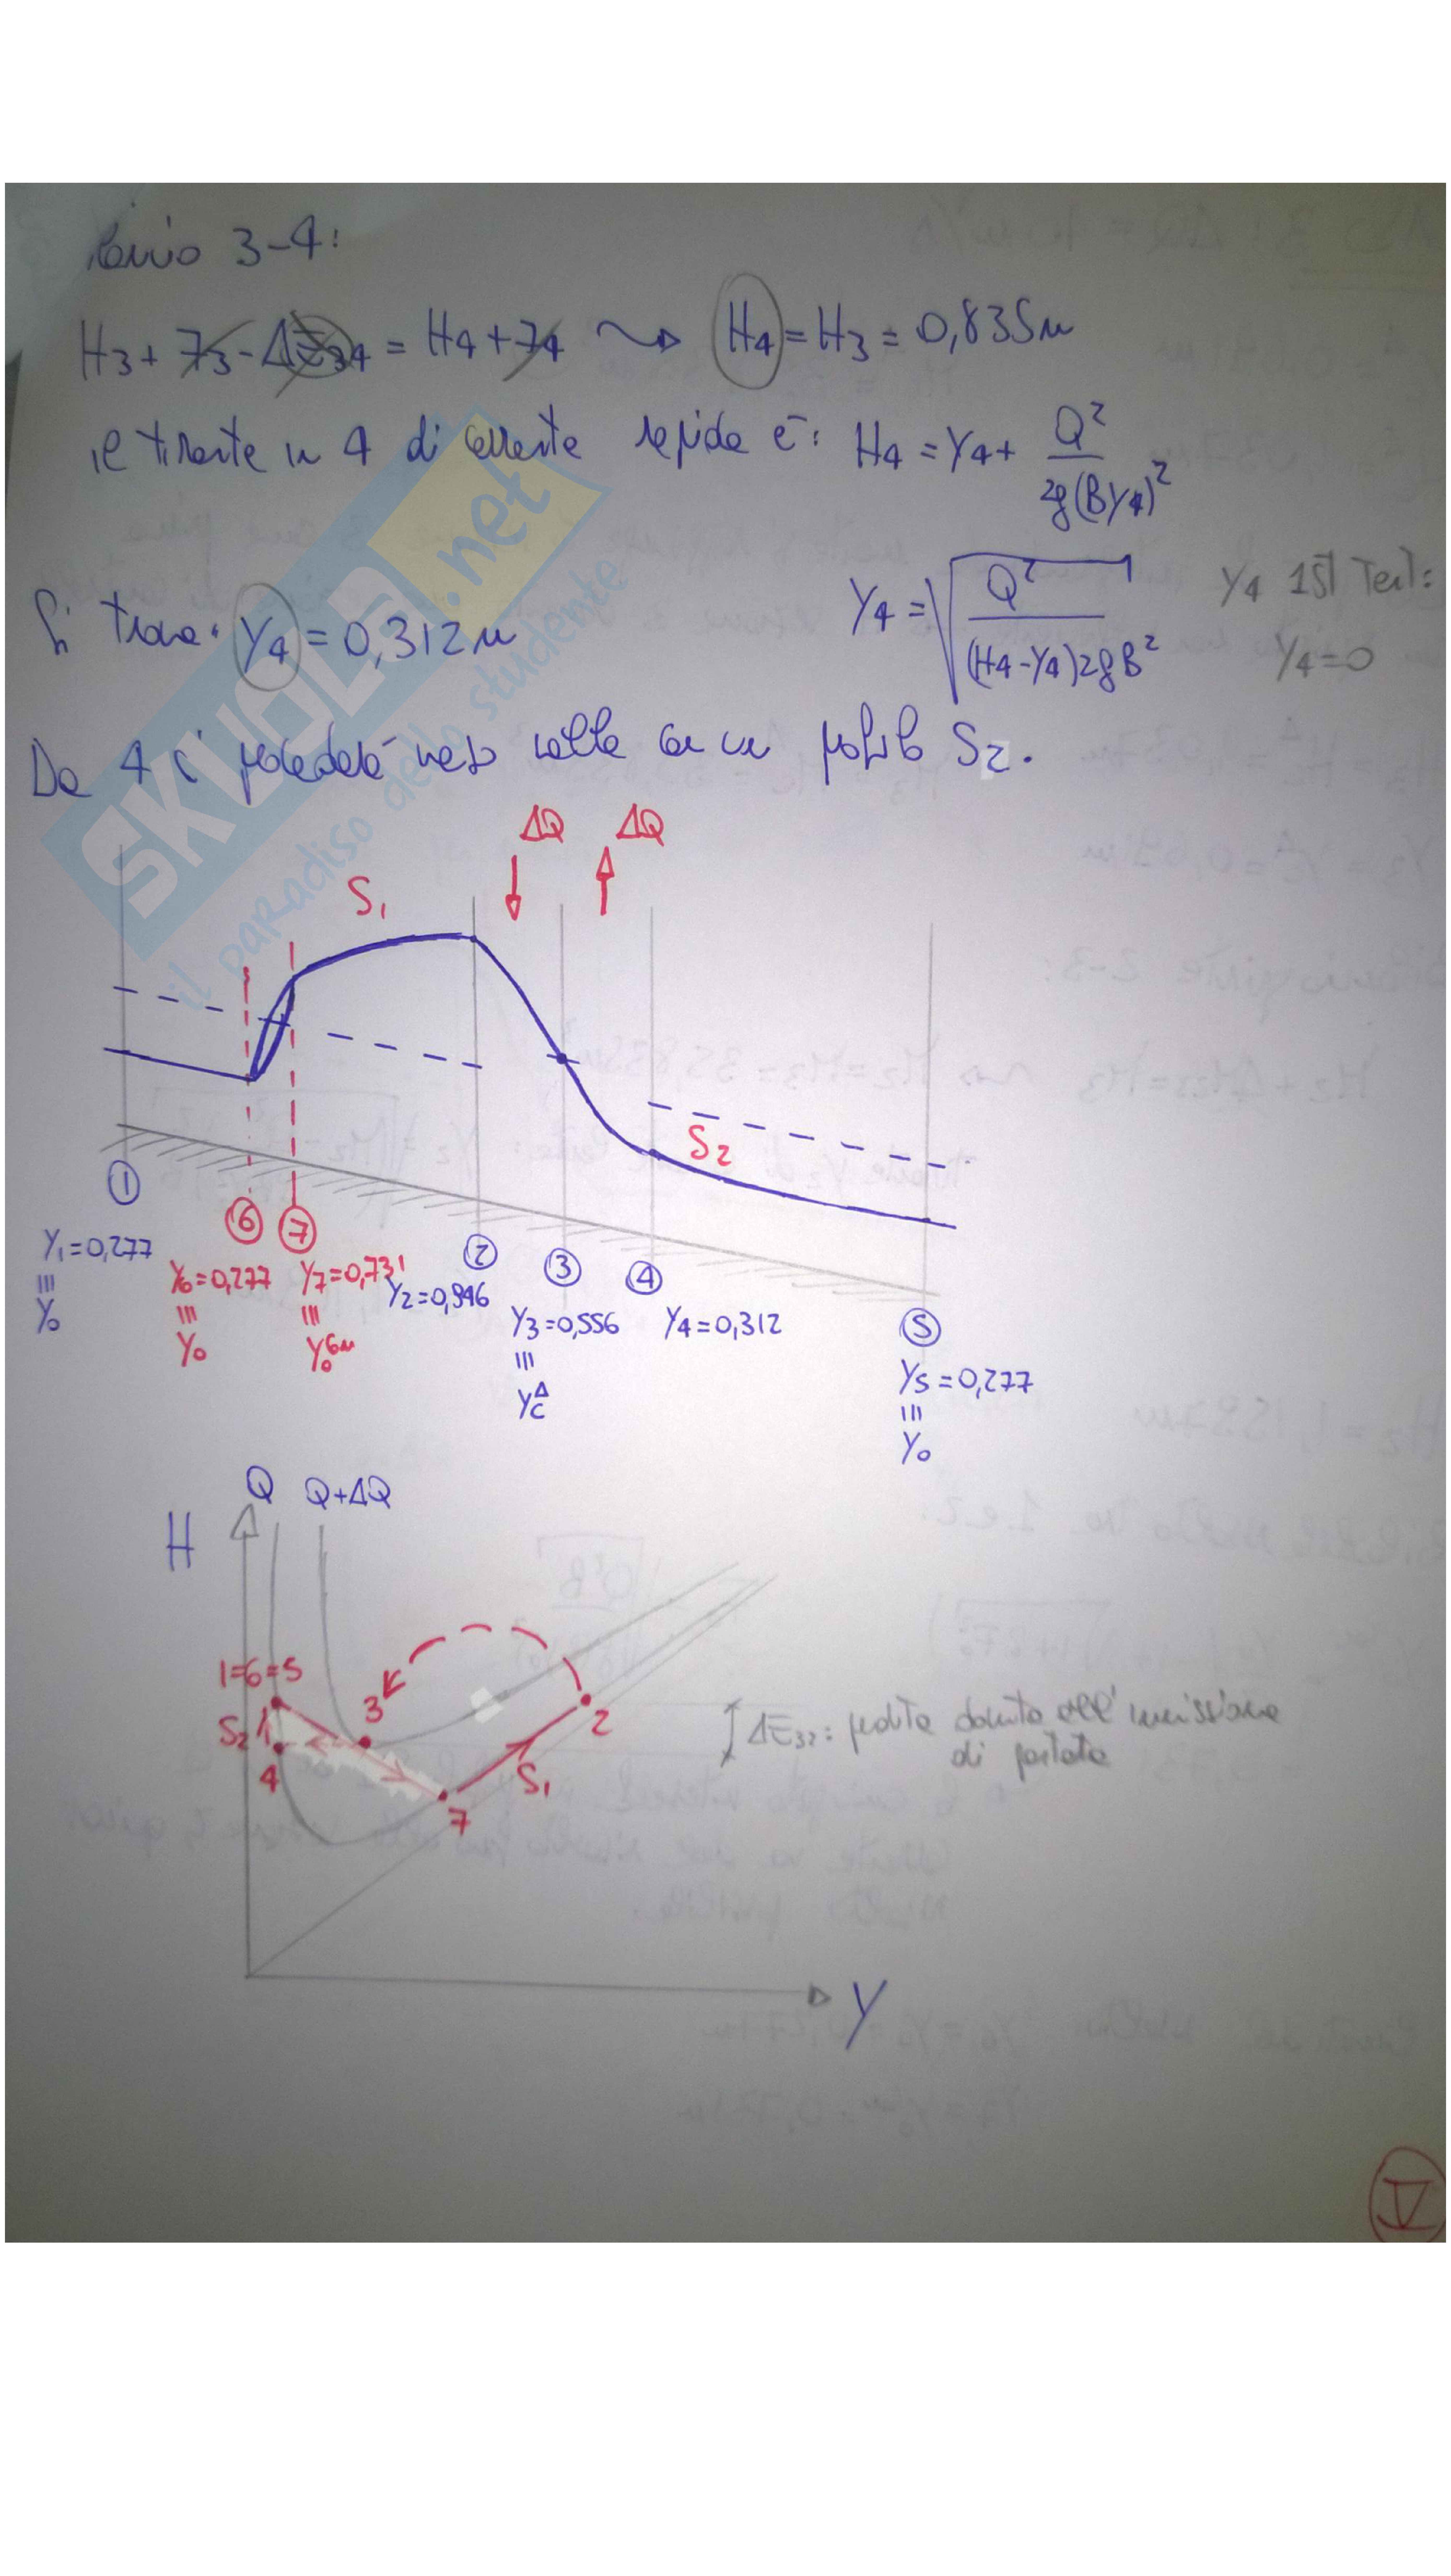 3-4:
H3 + z3 - ΔE34 = H4 + z4 ⇝ H4 = H3 = 0,835m
il tirante in 4 di corrente rapida è: H4 = Y4 + Q² / 2g(BY4)²
Si trova: Y4 = 0,312m
Y4 = √ Q² / (H4-Y4)2gB²
Y4 1ST Tent:
Y4=0
Da 4 si procederà verso valle con un profilo S2.
SKUOLA.net
il paradiso dello studente
ΔQ ΔQ
S1
S2
1
6 7
2
3
4
5
Y1=0,277
Y0
Y6=0,277
Y0
Y7=0,731
Y0
Y2=0,946
Y3=0,556
YcΔ
Y4=0,312
Y5=0,277
Y0
Q Q+ΔQ
H
1=6=5
3
2
S2
4
S1
7
ΔE32: perdita dovuta all'immissione
di portata
Y
V